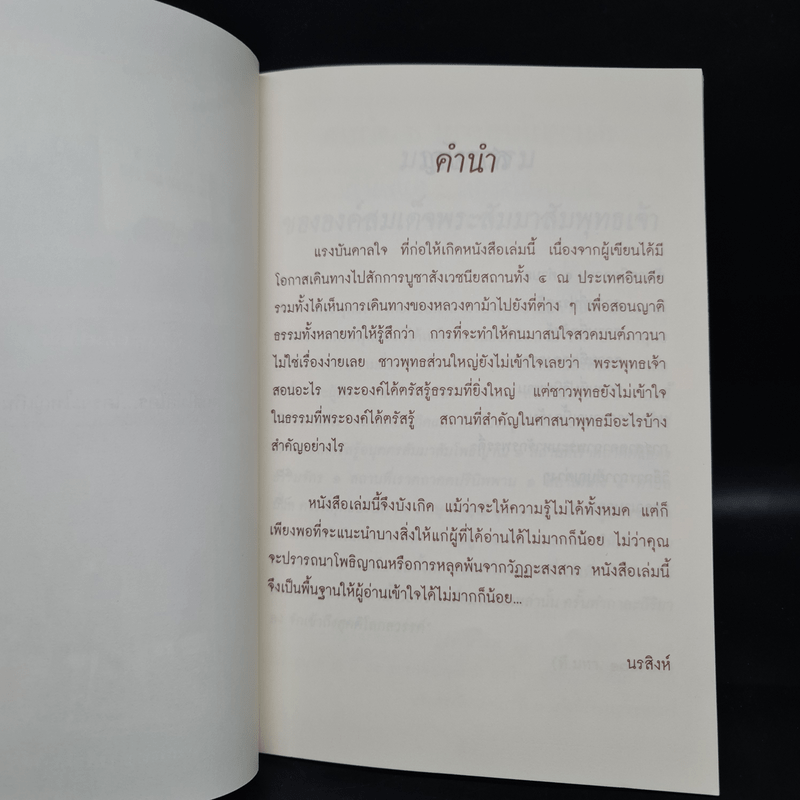 คำนำ
แรงบันดาลใจ ที่ก่อให้เกิดหนังสือเล่มนี้ เนื่องจากผู้เขียนได้มี
โอกาสเดินทางไปสักการบูชาสังเวชนียสถานทั้ง ๔ ณ ประเทศอินเดีย
รวมทั้งได้เห็นการเดินทางของหลวงตาม้าไปยังที่ต่าง ๆ เพื่อสอนญาติ
ธรรมทั้งหลายทำให้รู้สึกว่า การที่จะทำให้คนมาสนใจสวดมนต์ภาวนา
ไม่ใช่เรื่องง่ายเลย ชาวพุทธส่วนใหญ่ยังไม่เข้าใจเลยว่า พระพุทธเจ้า
สอนอะไร พระองค์ได้ตรัสรู้ธรรมที่ยิ่งใหญ่ แต่ชาวพุทธยังไม่เข้าใจ
ในธรรมที่พระองค์ได้ตรัสรู้ สถานที่สำคัญในศาสนาพุทธมีอะไรบ้าง
สำคัญอย่างไร
หนังสือเล่มนี้จึงบังเกิด แม้ว่าจะให้ความรู้ไม่ได้ทั้งหมด แต่ก็
เพียงพอที่จะแนะนำบางสิ่งให้แก่ผู้ที่ได้อ่านได้ไม่มากก็น้อย ไม่ว่าคุณ
จะปรารถนาโพธิญาณหรือการหลุดพ้นจากวัฏฏะสงสาร หนังสือเล่มนี้
จึงเป็นพื้นฐานให้ผู้อ่านเข้าใจได้ไม่มากก็น้อย...
นรสิงห์